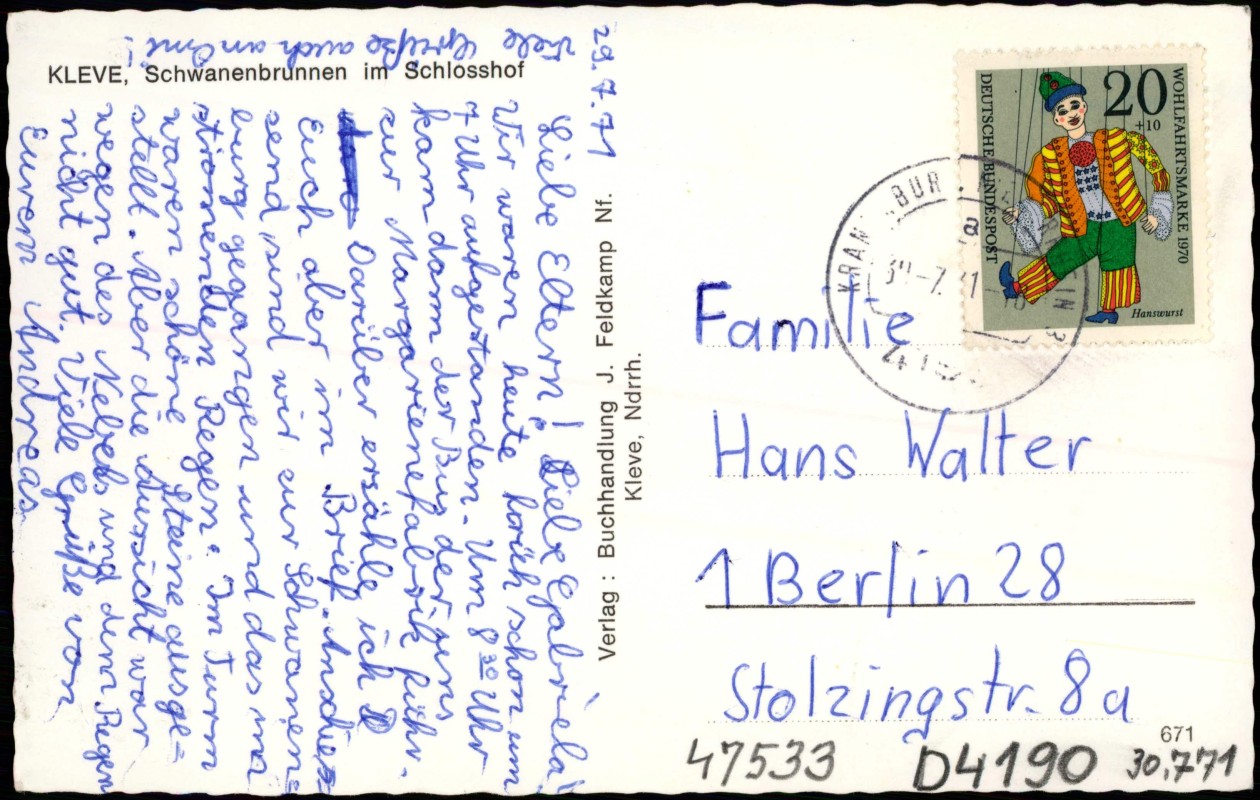 KLEVE, Schwanenbrunnen im Schlosshof
29.7.71
Liebe Eltern! Liebe Gabriela!
Wir waren heute früh schon um
7 Uhr aufgestanden. Um 8 30 Uhr
kam dann der Bus der uns
zur Margarienefabrik führ.
Darüber erzähle ich
Euch aber im Brief. Anschließ
send, sind wir zur Schwanen=
burg gegangen und das im
strömenden Regen. Im Turm
waren schöne Steine ausge=
stellt. Aber die Aussicht war
wegen des Nebels und dem Regen
nicht gut. Viele Grüße von
Euren Andreas
Viele Grüße auch an Omi!
Verlag: Buchhandlung J. Feldkamp Nf.
Kleve, Ndrrh.
DEUTSCHE BUNDESPOST
20
+10
WOHLFAHRTSMARKE 1970
Hanswurst
a
Familie
Hans Walter
1 Berlin 28
Stolzingstr. 8a
671
47533 D4190 30.7.71